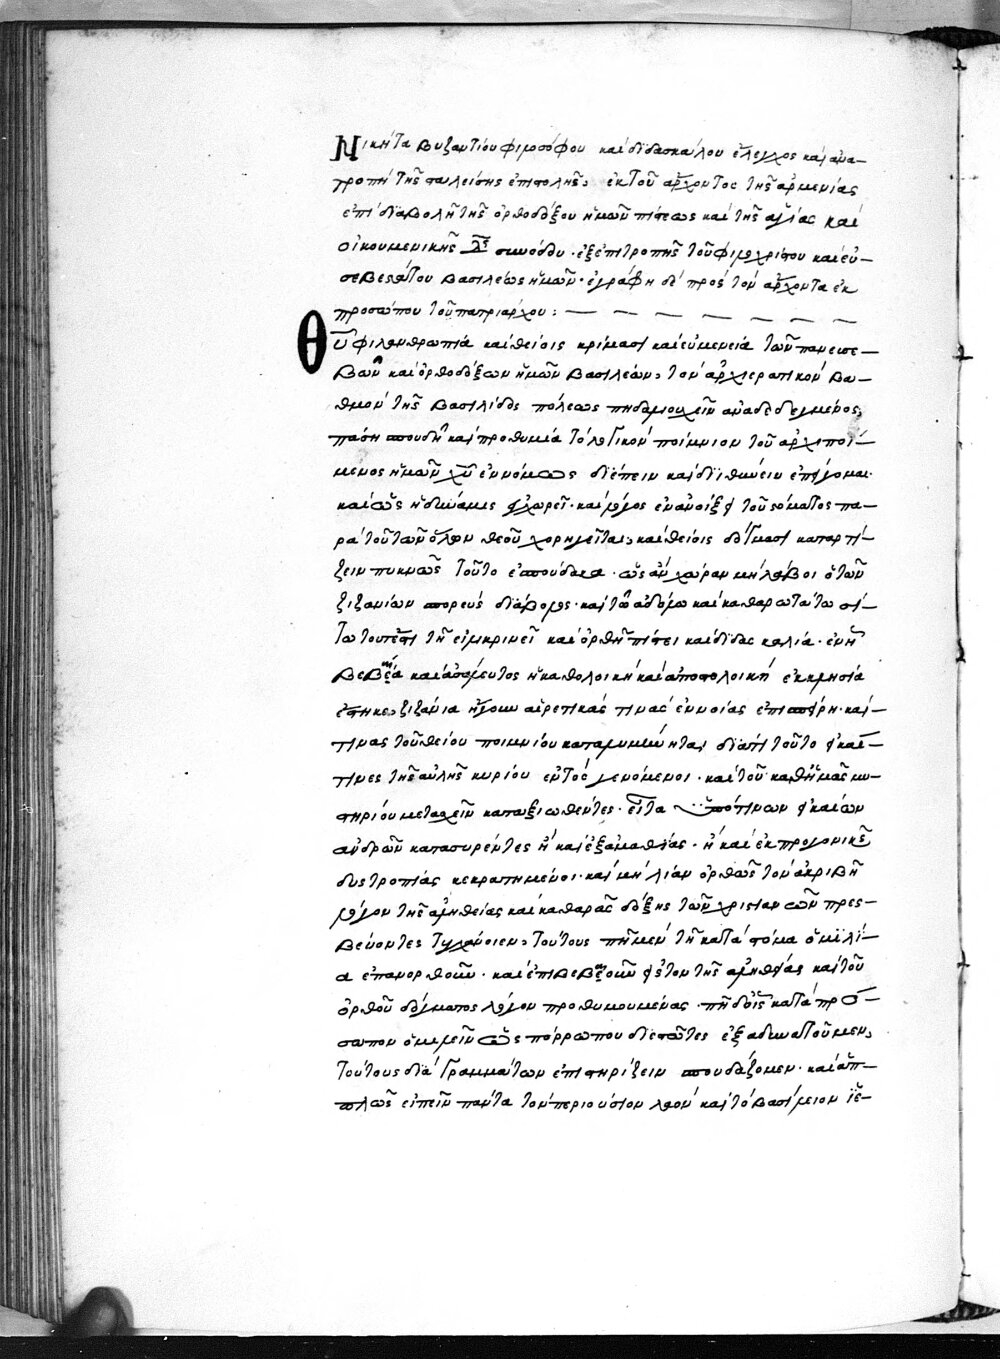 Νικήτα Βυζαντίου φιλοσόφου καὶ διδασκάλου ἔλεγχος καὶ ἀνα-
τροπὴ τῆς σταλείσης ἐπιστολῆς, ἐκ τοῦ ἄρχοντος τῆς ἀρμενίας
ἐπὶ διαβολῇ τῆς ὀρθοδόξου ἡμῶν πίστεως καὶ τῆς ἁγίας καὶ
οἰκουμενικῆς δ΄ συνόδου. ἐξ ἐπιτροπῆς τοῦ φιλοχρίστου καὶ εὐ-
σεβεστάτου βασιλέως ἡμῶν. ἐγράφη δὲ πρὸς τὸν ἄρχοντα ἐκ
προσώπου τοῦ πατριάρχου:
Θῦ φιλανθρωπία καὶ θείοις κρίμασι καὶ εὐμενεία τῶν πανευσε-
βῶν καὶ ὀρθοδόξων ἡμῶν βασιλέων, τὸν ἀρχιερατικὸν βα-
θμὸν τῆς βασιλίδος πόλεως πηδαλιουχεῖν ἀναδεδεγμένος,
πάση σπουδῆ καὶ προθυμία τὸ λογικὸν ποίμνιον τοῦ ἀρχιποί-
μενος ἡμῶν χῦ ἐννόμως διέπειν καὶ διιθύνειν ἐπείγομαι.
καὶ ὡς ἡ δύναμις ἐγχωρεῖ. καὶ λόγος ἐν ἀνοίξει τοῦ στόματος πα-
ρὰ τοῦ τῶν ὅλων θεοῦ χορηγεῖται, καὶ θείοις δόγμασι καταρτί-
ζειν πυκνῶς τοῦτο ἐσπούδακα. ὡς ἂν χώραν μὴ λάβοι ὁ τῶν
ζιζανίων σπορεὺς διάβολος. καὶ τῶ ἀδόλω καὶ καθαρωτάτω σί-
τω τουτέστι τῆ εἰλικρινεῖ καὶ ὀρθῆ πίστει καὶ διδασκαλία. ἐν ἧ
βεβαία καὶ ἀσάλευτος ἡ καθολικὴ καὶ ἀποστολικὴ ἐκκλησία
ἕστηκε, ζιζάνια ἤγουν αἱρετικάς τινας ἐννοίας ἐπισπείρη. καί
τινας τοῦ θείου ποιμνίου καταλυμήνηται, διατί τοῦτο εἰ καί
τινες τῆς αὐλῆς κυρίου ἐντὸς γενόμενοι. καὶ τοῦ καθ' ἡμᾶς μυ-
στηρίου μετασχεῖν καταξιωθέντες. εἶτα ὑπό τινων εἰκαίων
ἀνδρῶν κατασυρέντες ἢ καὶ ἐξ ἀμαθίας. ἢ καὶ ἐκ προγονικῆς
δυστροπίας κεκρατημένοι. καὶ μὴ λίαν ὀρθῶς τὸν ἀκριβῆ
λόγον τῆς ἀληθείας καὶ καθαρᾶς δόξης τῶν χριστιανῶν πρεσ-
βεύοντες τυγχάνοιεν, τούτους πῆ μὲν τῆ κατὰ στόμα ὁμιλί-
α ἐπανορθοῦν. καὶ ἐπιβεβαιοῦν εἰς τὸν τῆς ἀληθείας καὶ τοῦ
ὀρθοῦ δόγματος λόγον προθυμουμένας. πῆ δ' οἷς κατὰ πρό-
σωπον ὁμιλεῖν ὡς πόρρω που διεστῶτες ἐξαδυνατοῦμεν,
τούτους διὰ γραμμάτων ἐπιστηρίζειν σπουδάζομεν. καὶ ἁπ-
πλῶς εἰπεῖν πάντα τὸν περιούσιον λαὸν καὶ τὸ βασίλειον ἱε-